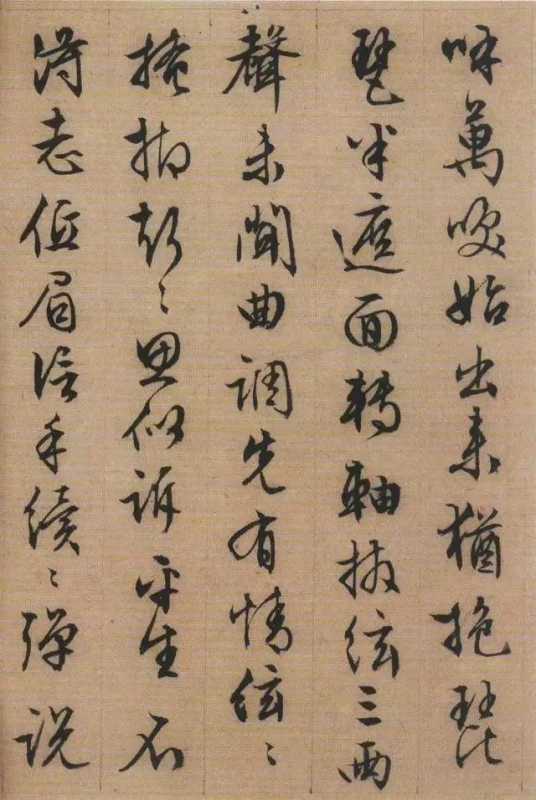 呼萬喚始出來猶抱琵
琶半遮面轉軸撥絃三兩
聲未聞曲調先有情絃〻
掩抑聲〻思似訴平生不
得志低眉信手續〻彈説